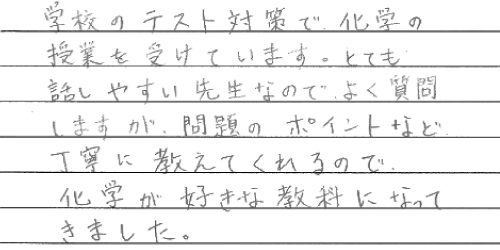 学校のテスト対策で、化学の
授業を受けています。とても
話しやすい先生なので、よく質問
しますが、問題のポイントなど、
丁寧に教えてくれるので、
化学が好きな教科になって
きました。